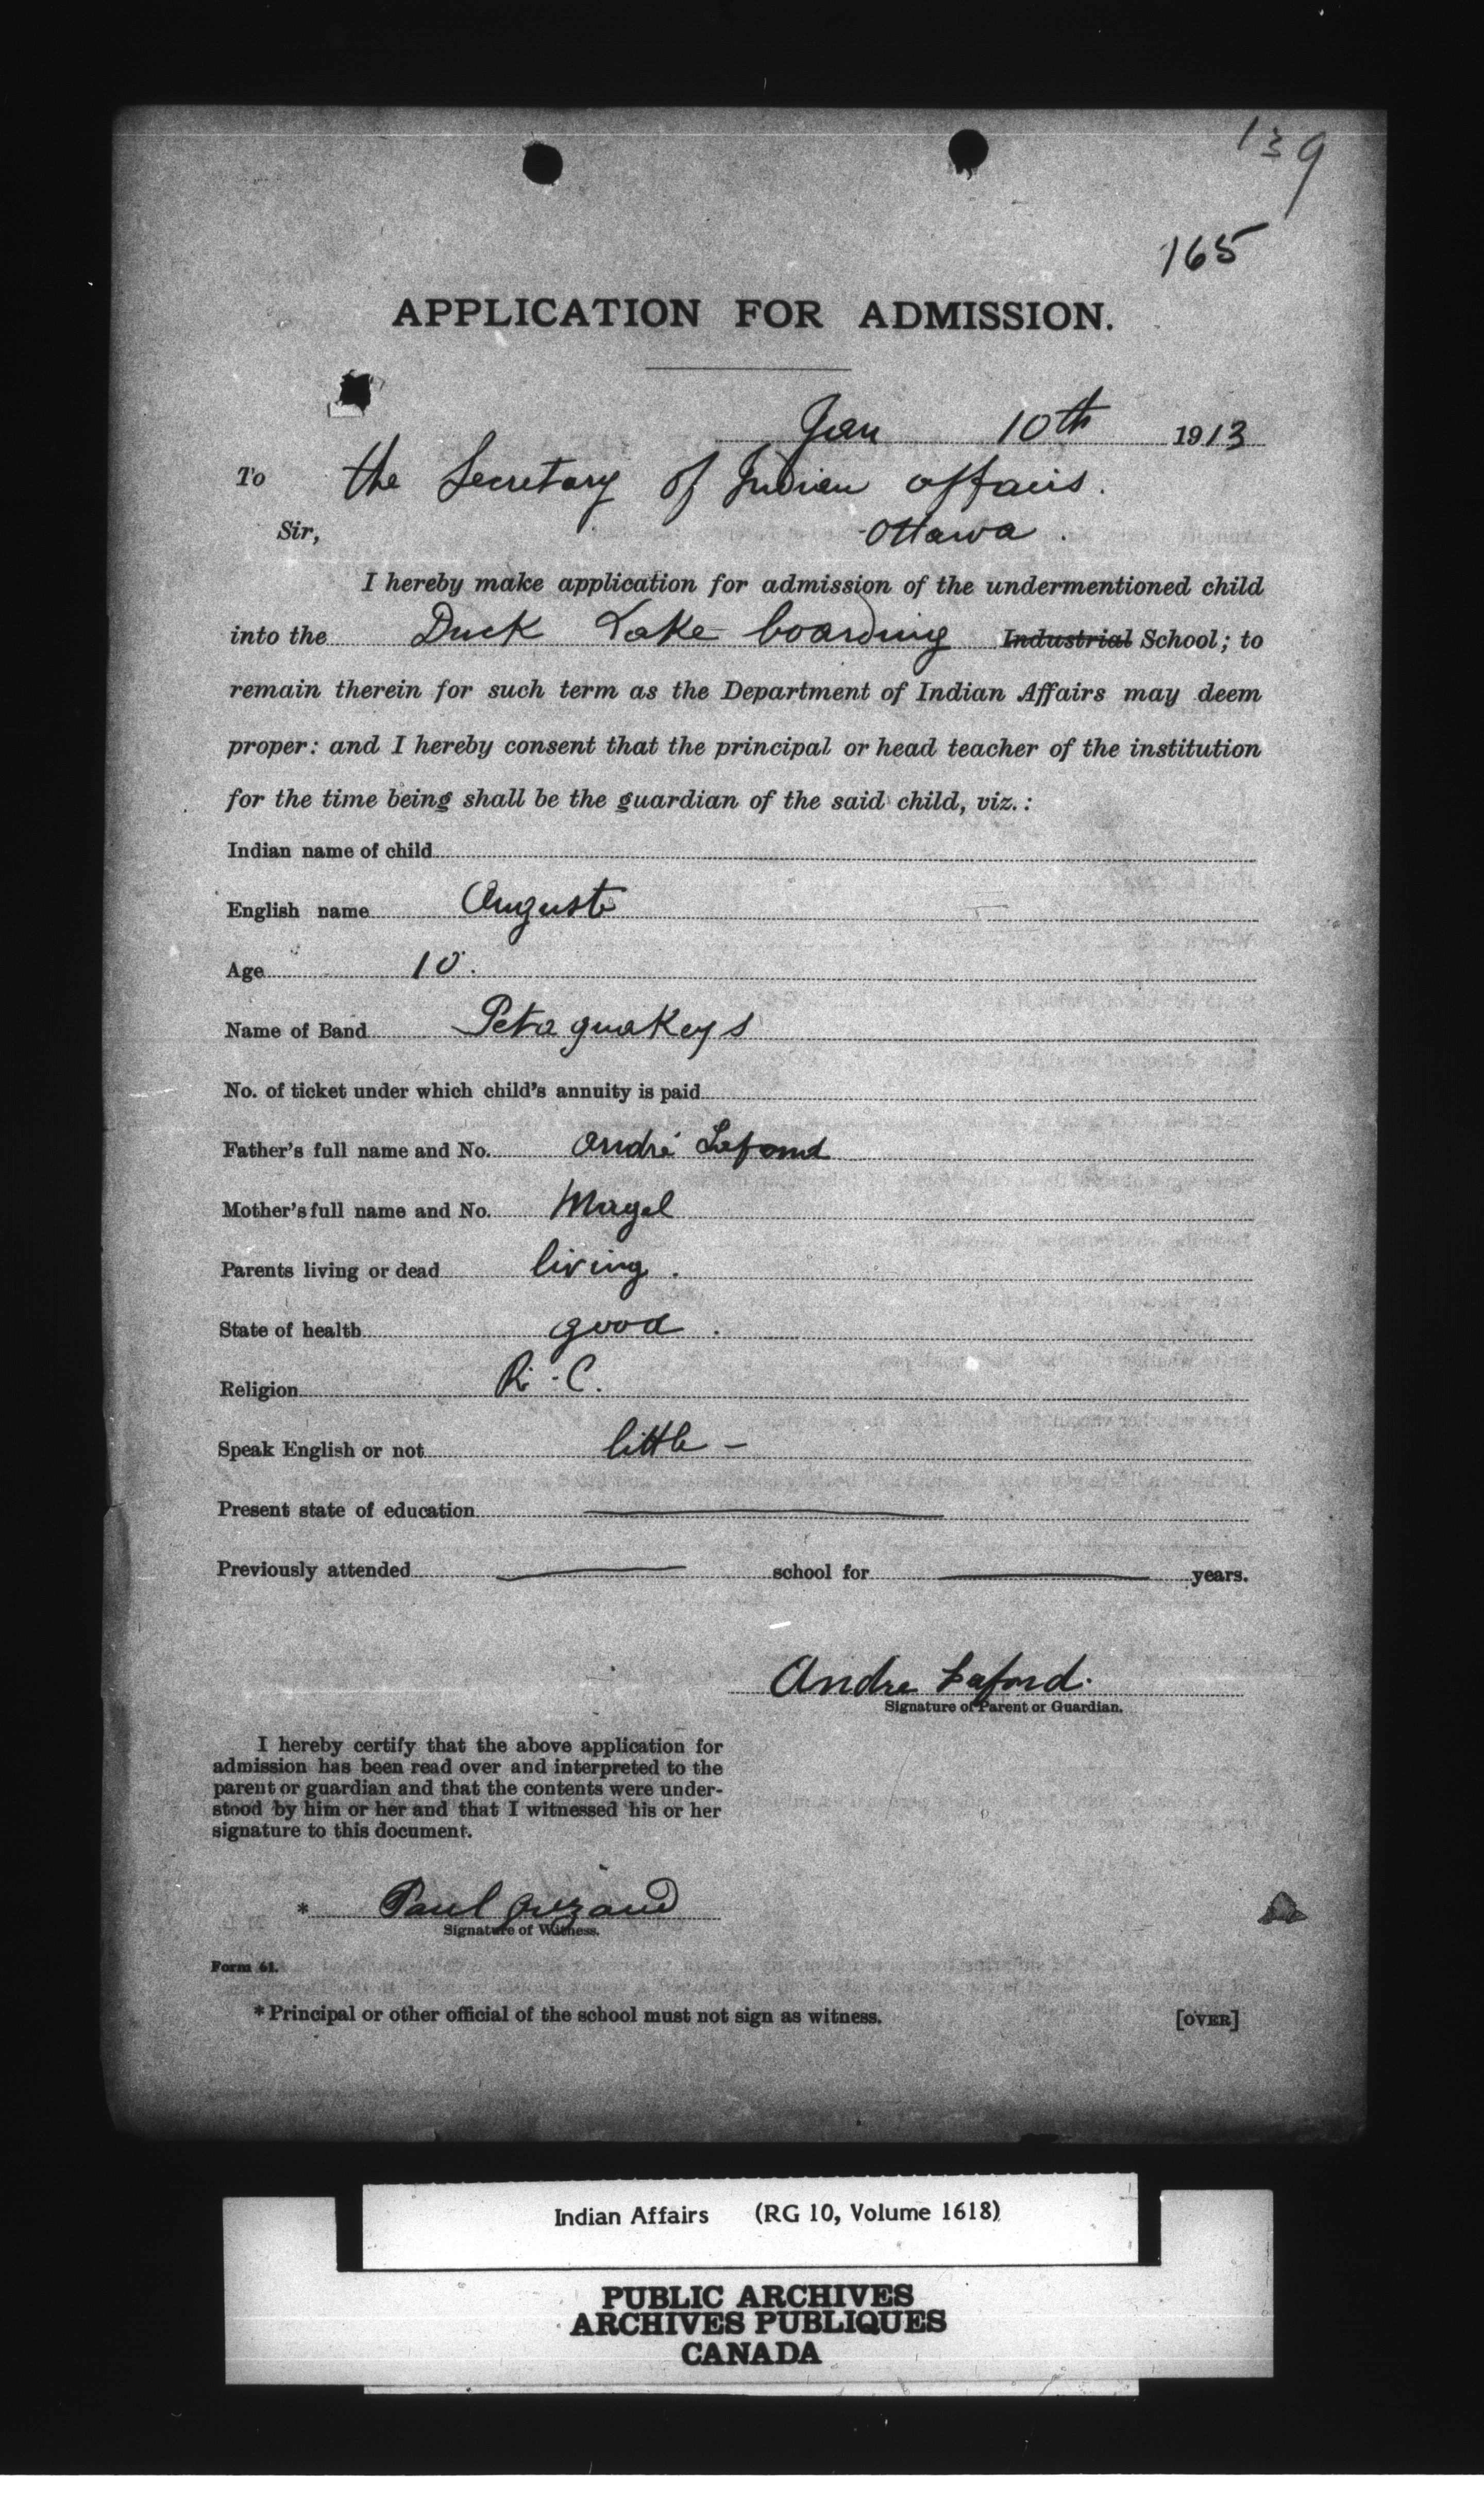 139
165
APPLICATION FOR ADMISSION.
Jan 10th 1913
To the Secretary of Indian affairs.
Sir, Ottawa.
I hereby make application for admission of the undermentioned child
into the Duck Lake boarding Industrial School; to
remain therein for such term as the Department of Indian Affairs may deem
proper: and I hereby consent that the principal or head teacher of the institution
for the time being shall be the guardian of the said child, viz.:
Indian name of child
English name Auguste
Age 10.
Name of Band Petaquakeys
No. of ticket under which child's annuity is paid
Father's full name and No. André Lafond
Mother's full name and No. Magel
Parents living or dead living.
State of health good.
Religion R.C.
Speak English or not little –
Present state of education
Previously attended school for years.
Andre Lafond.
Signature of Parent or Guardian.
I hereby certify that the above application for
admission has been read over and interpreted to the
parent or guardian and that the contents were under-
stood by him or her and that I witnessed his or her
signature to this document.
* Paul
Signature of Witness.
Form 61.
* Principal or other official of the school must not sign as witness.
[OVER]
Indian Affairs (RG 10, Volume 1618)
PUBLIC ARCHIVES
ARCHIVES PUBLIQUES
CANADA